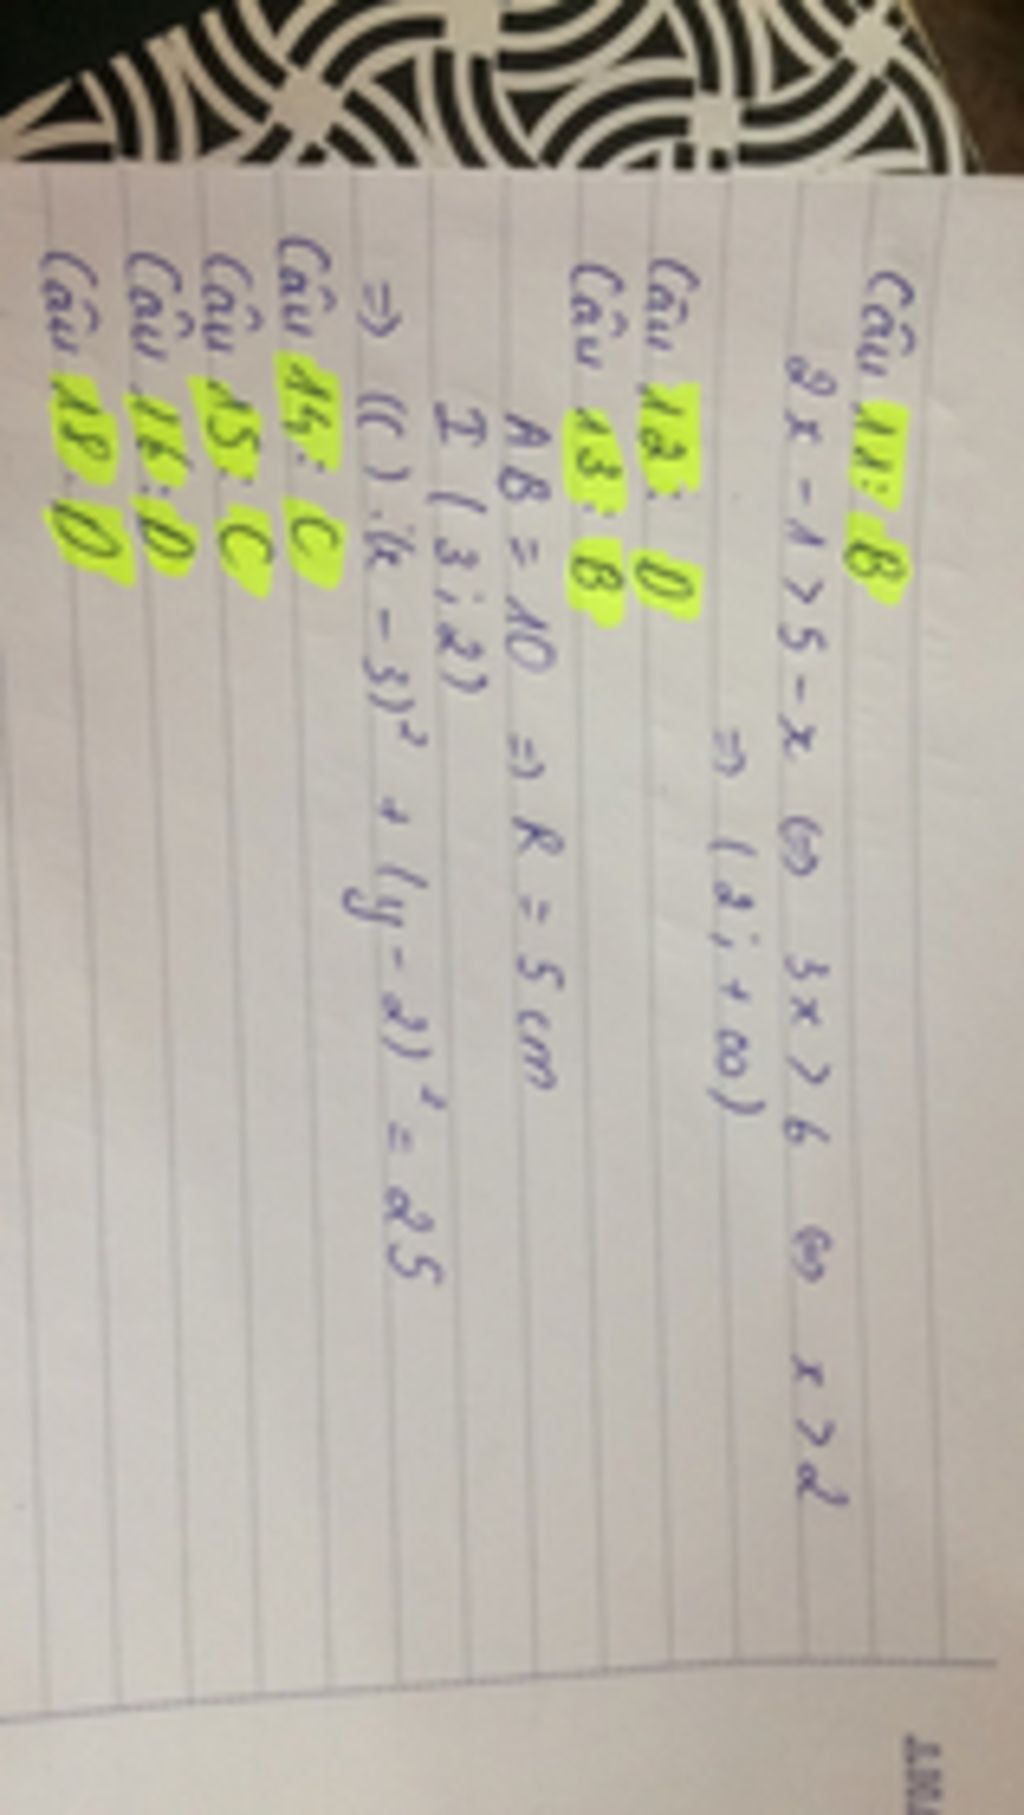 Câu 11: B
2x - 1 > 5 - x ⇔ 3x > 6 ⇔ x > 2
⇒ (2; +∞)
Câu 12: D
Câu 13: B
AB = 10 ⇒ R = 5 cm
I (3; 2)
⇒ (C): (x - 3)² + (y - 2)² = 25
Câu 14: C
Câu 15: C
Câu 16: D
Câu 18: D